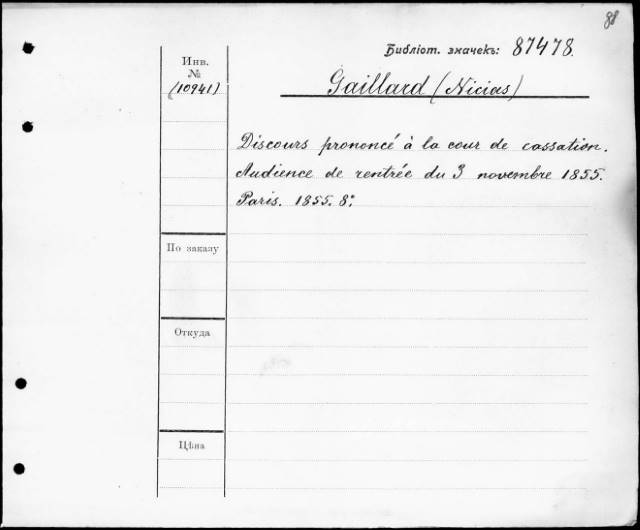 88
Библіот. значекъ: 87478.
Инв.
№
(10941)
Gaillard (Nicias)
Discours prononcé à la cour de cassation.
Audience de rentrée du 3 novembre 1855.
Paris. 1855. 8º.
По заказу
Откуда
Цѣна